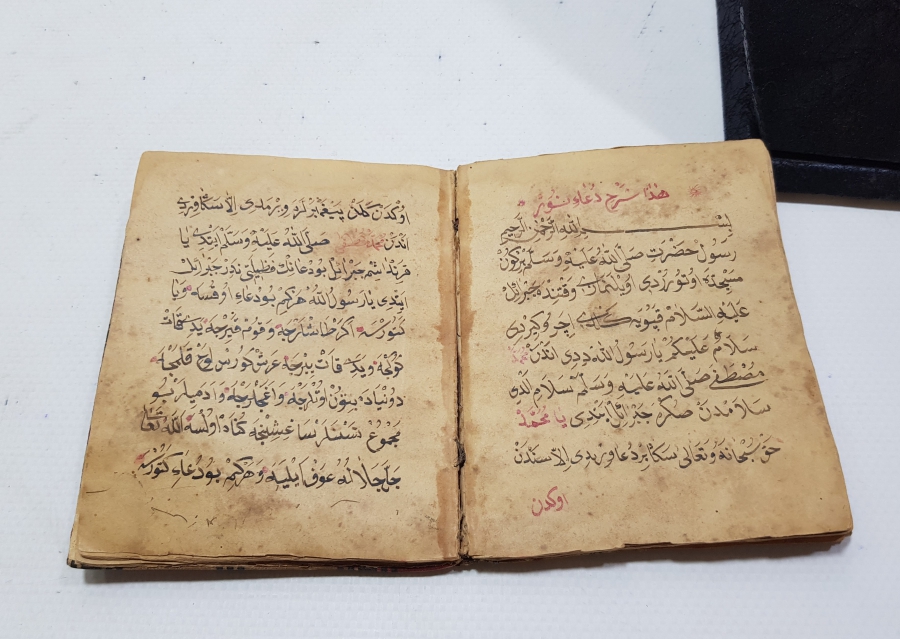 هذا شرح دعاء نور
بسم الله الرحمن الرحيم
رسول حضرت صلى الله عليه وسلم بركون
مسجدده اوتورردى اويله نماز وقتنده جبرائل
عليه السلام قپويه كلدى ايچرو كيردى
سلام عليكم يا رسول الله ددى اندن محمد
مصطفى صلى الله عليه وسلم سلام الدى
سلامدن صكره جبرائل ايتدى يا محمد
حق سبحانه وتعالى سكا بر دعا ويردى الا سندن
اوكدن
اوكدن كلن پيغمبرلره ويرمدى الا سكا ويردى
اندن محمد مصطفى صلى الله عليه وسلم ايتدى يا
قرنداشم جبرائل بو دعانك فظيلتى ندر جبرائل
ايتدى يا رسول الله هركم بو دعاء اوقسه ويا
كتورسه اكر طاشلرجه وقوملر قيرجه يدى قات
كوكجه ويدى قات يرجه عرش كورس لوح قلمجه
دونياده بتون اوتلرجه واغجلرجه وادميلر بو
مجموع عشنجه كناه اولسه الله تعالى
جل جلاله عوف ايليه وهركم بو دعاء كتورسه